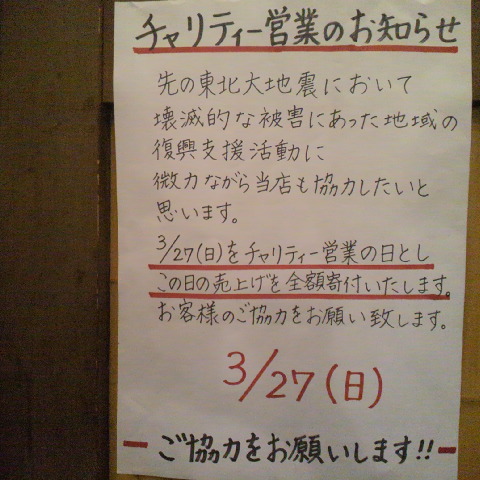 チャリティー営業のお知らせ
先の東北大地震において
壊滅的な被害にあった地域の
復興支援活動に
微力ながら当店も協力したいと
思います。
3/27(日)をチャリティー営業の日とし
この日の売上げを全額寄付いたします。
お客様のご協力をお願い致します。
3/27(日)
ー ご協力をお願いします!! ー